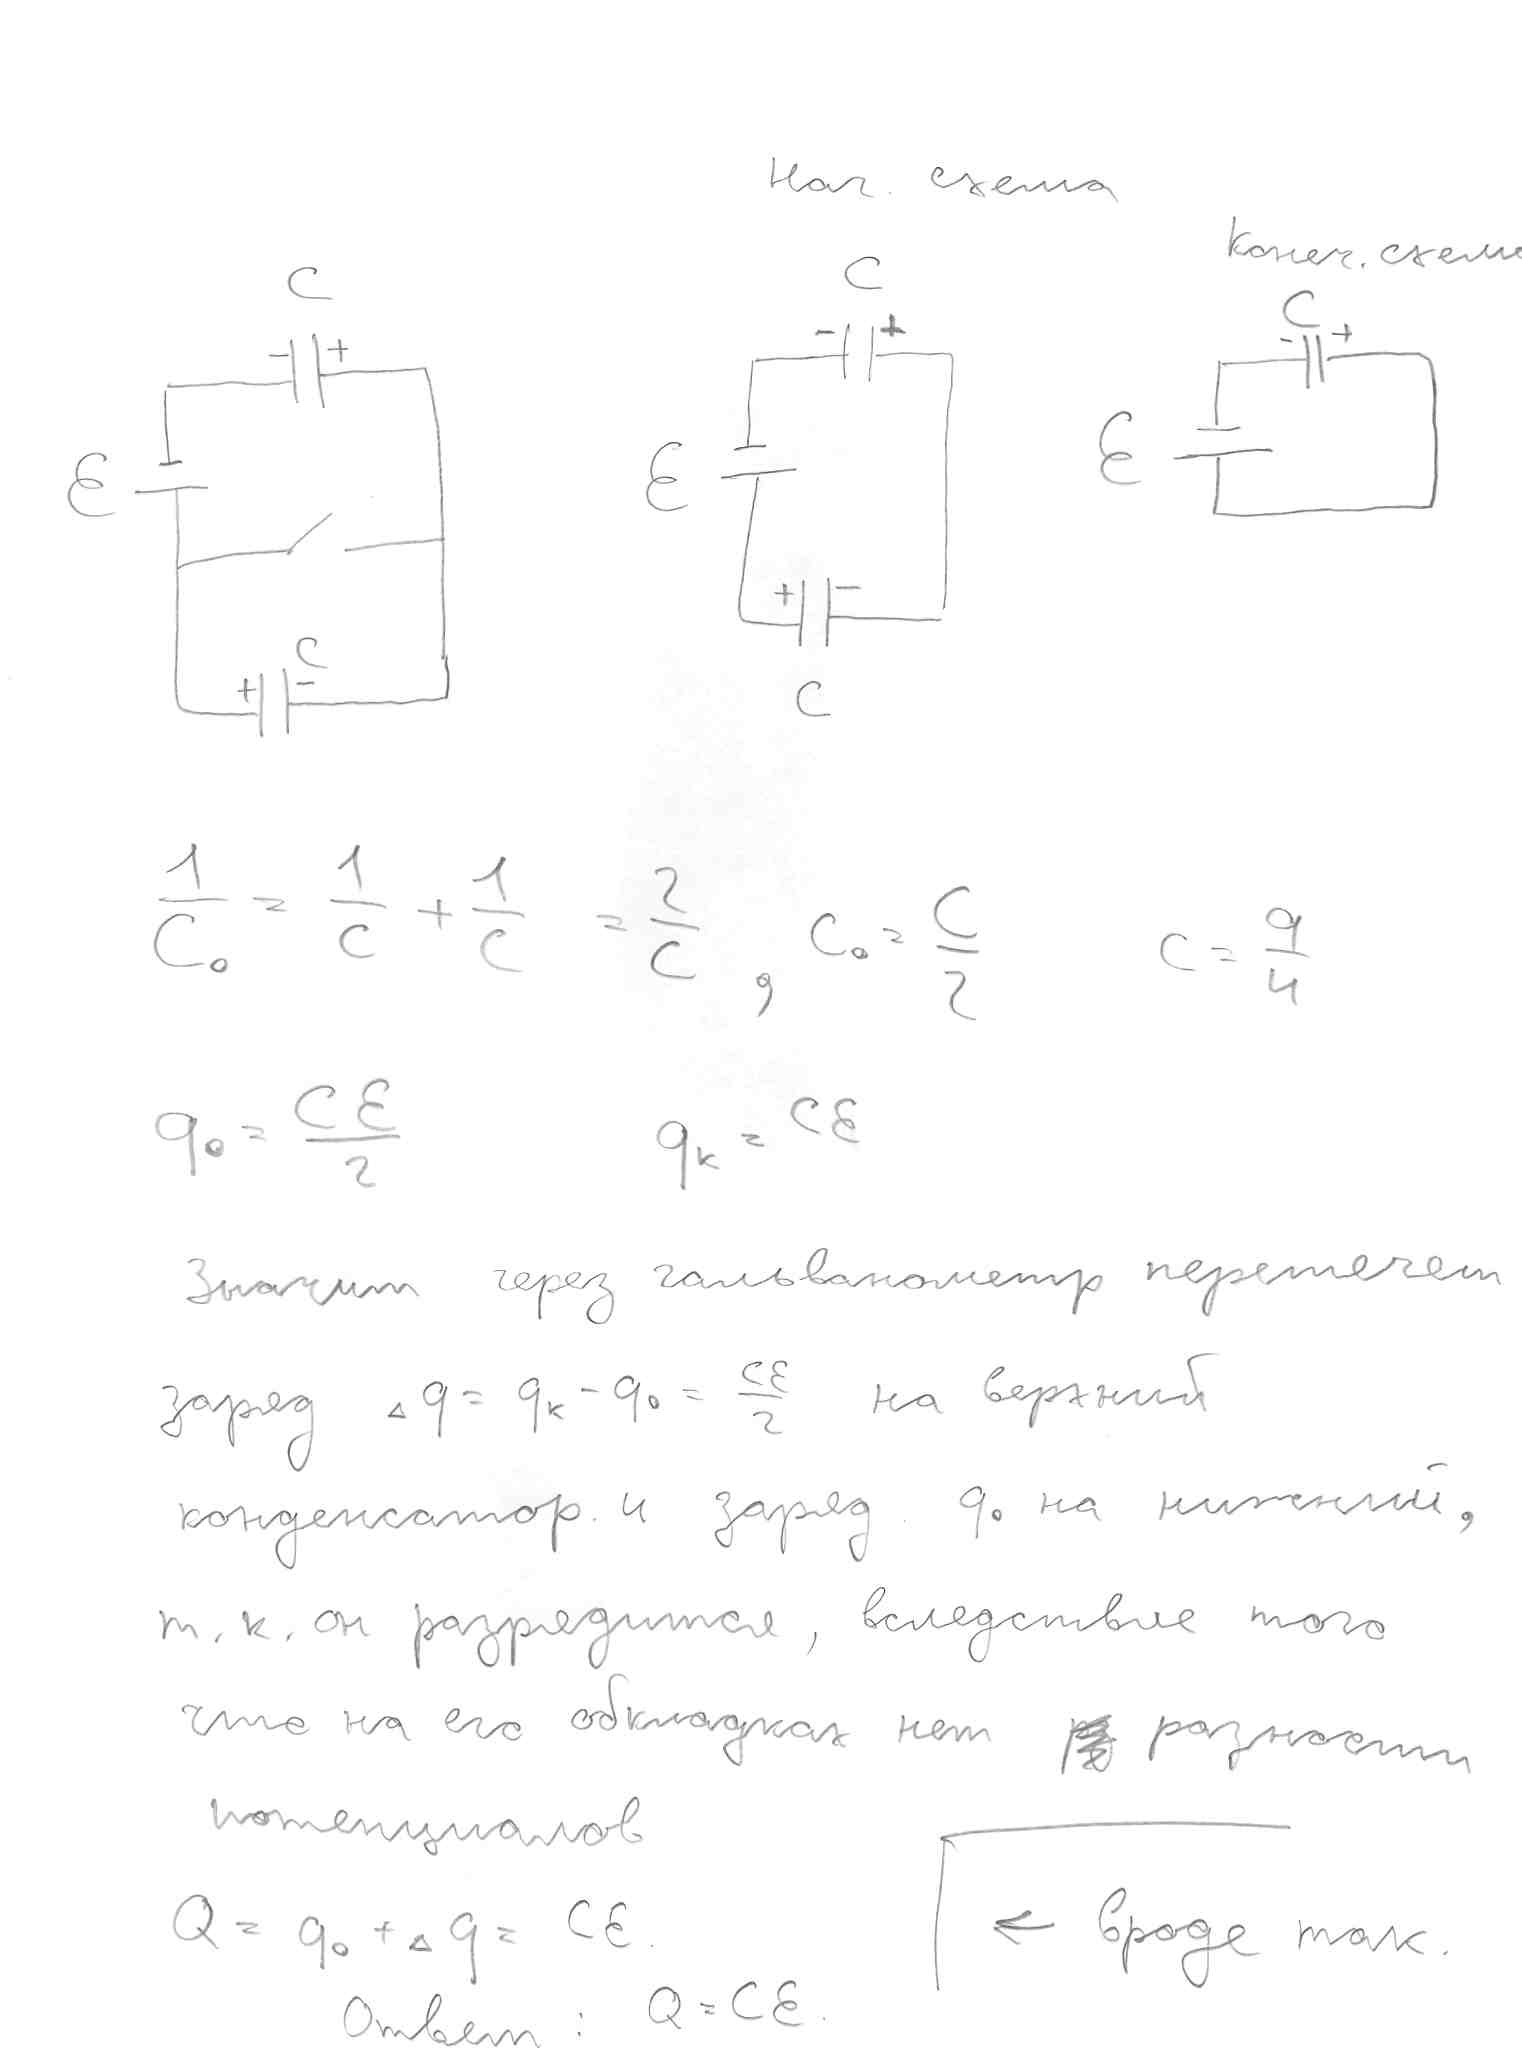 Нач. схема
Конеч. схема
C
C
C
- +
- +
- +
ℰ
ℰ
ℰ
C
+ -
+ -
C
1/C₀ = 1/C + 1/C = 2/C, C₀ = C/2 C = q/u
q₀ = Cℰ/2 qк = Cℰ
Значит через гальванометр перетечет
заряд Δq = qк - q₀ = Cℰ/2 на верхний
конденсатор и заряд q₀ на нижний,
т.к. он разрядится, вследствие того
что на его обкладках нет разности
потенциалов
Q = q₀ + Δq = Cℰ.
← вроде так.
Ответ: Q = Cℰ.